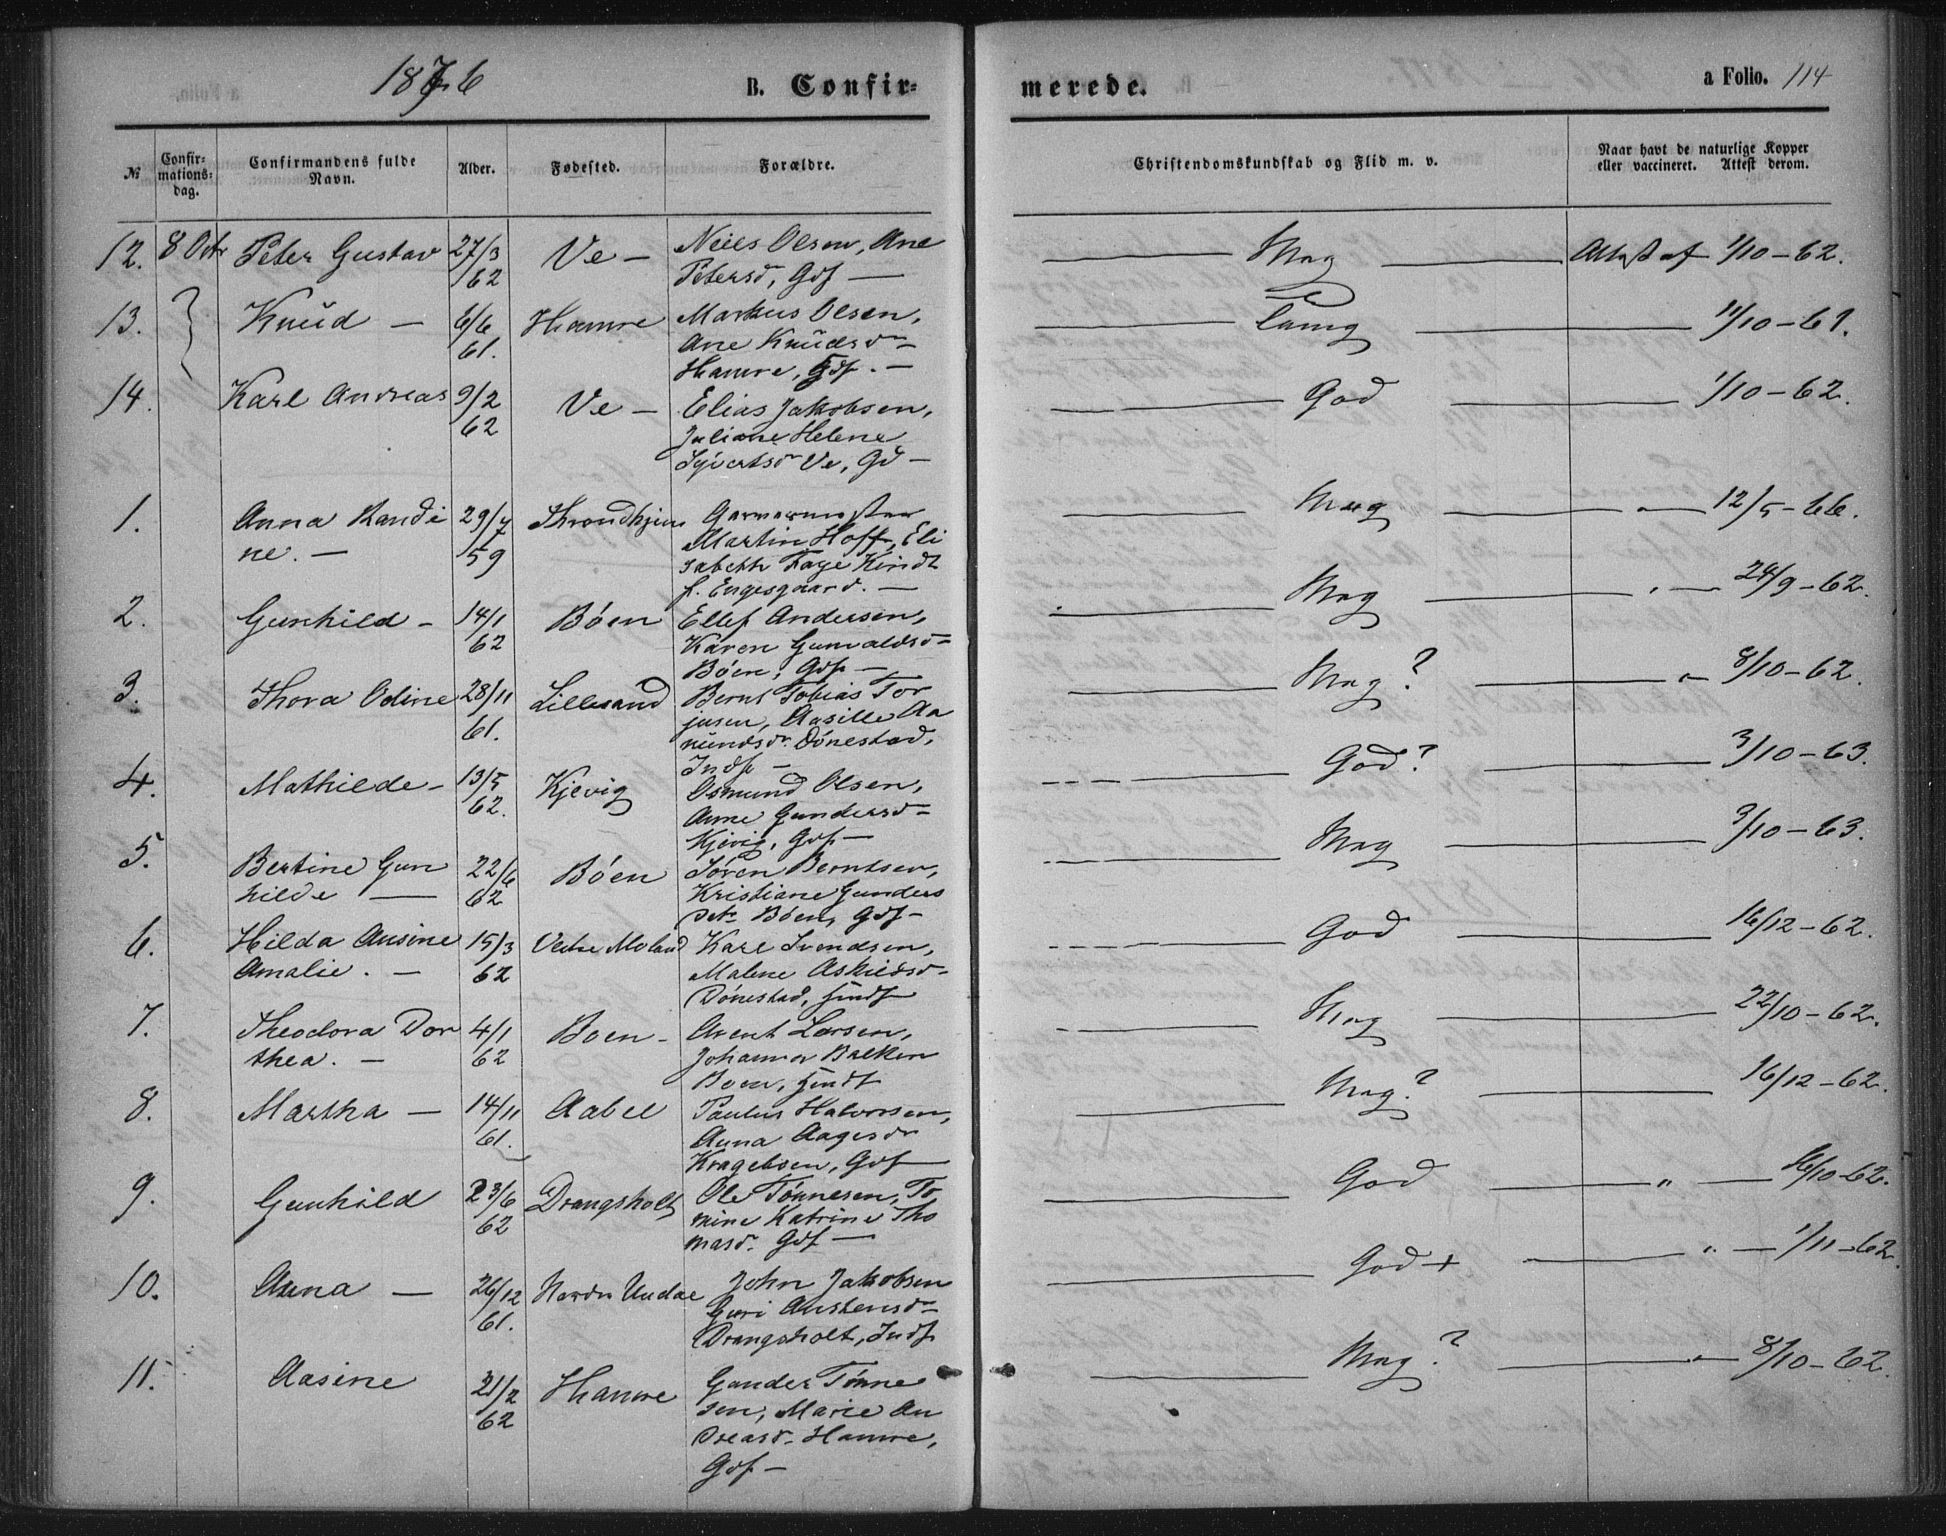 1876
B. Confir-
merede.
a Folio. 114
№
Confir-
mations-
dag.
Confirmandens fulde
Navn.
Alder.
Fødested.
Forældre.
Christendomskundskab og Flid m. v.
Naar havt de naturlige Kopper
eller vaccineret. Attest derom.
12. 8 Octr Peter Gustav 27/3 62 Ve — Niels Olsen, Ane
Petersd, Gdf —
Mag — Attest af 1/10-62.
13. Knud — 6/6 61. Hamre Markus Olsen,
Ane Knudsd
Hamre, Gdf. —
Temg — 11/10-61.
14. Karl Andreas 9/2 62 Ve — Elias Jakobsen,
Juliane Helene
Syvertsd Ve, Gd —
God — 1/10-62.
1. Anna Randi
ne. — 29/7 59 Throndhjem Garvermester
Martin Hoff, Eli
sabeth Faye Kindt
f. Engesgaard. —
Meg — " — 12/5-66.
2. Gunhild — 14/1 62 Bøen Ellef Andersen,
Karen Gunvaldsd —
Bøen, Gdf —
Mag — " — 24/9-62.
3. Thora Odine 28/11 61. Lillesand Bernt Tobias Tor
jusen, Aasille Aa
nundsdr. Dønestad,
Indf —
Mag? — " — 8/10-62.
4. Mathilde — 13/5 62. Kjevig Osmund Olsen,
Anne Gundersd —
Kjevig, Gdf —
God? — 3/10-63.
5. Bertine Gun
hilde — 22/6 62 Bøen Søren Berntsen,
Kristiane Gunders
datr Bøen, Gdf —
Mag — 3/10-63.
6. Hilda Ausine
Amalie. — 15/3 62 Vestre Moland Karl Svendsen,
Malene Askildsd —
Dønestad, Hindf
God — 16/12-62.
7. Theodora Dor
thea. — 4/1 62 Boen — Arent Larsen,
Johanna Balken
Boen, Hindf
Meg — 22/10-62.
8. Martha — 14/11 61. Aabel Paulus Halvorsen,
Anna Aagesdr
Kragebsen, Gdf —
Mag? — 16/12-62.
9. Gunhild 23/6 62 Drangsholt Ole Tønnesen, To
mine Katrine Tho
masd. Gdf —
God — " — 16/10-62.
10. Anna — 26/12 61. Nordre Undal John Jakobsen
Guri Austensd —
Drangsholt, Indf
God + — " — 1/11-62.
11. Aasine 21/2 62 Hamre Gunder Tønne
sen, Marie An
dreasd. Hamre,
Gdf —
Mag? — " — 8/10-62.